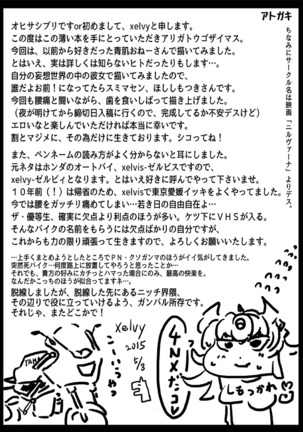 アトガキ
ちなみにサークル名は映画「ニルヴァーナ」よりデス。
オヒサシブリですor初めまして、xelvyと申します。
この度はこの薄い本を手にとっていただきアリガトウゴザイマス。
今回は、以前から好きだった青肌おねーさんで描いてみました。
とはいえ、実は詳しくは知らないヒトだったりもします…。
自分の妄想世界の中の彼女で描いてみましたので、
誰だよお前！になってたらスミマセン、ほししもつきさんです。
今回も腰痛と闘いながら、歯を食いしばって描き上げました。
（夜が明けてから締切日入稿に行くので、完成してるか不安デスけど）
エロいなと楽しんでいただければ本当に幸いです。
割とマジメに、その為だけに生きております。シコってね！
また、ペンネームの読み方がよく分からないと耳にしました。
元ネタはホンダのオートバイ、xelvis-ゼルビスですので、
xelvy-ゼルビィとなります。とはいえ好きに呼んでやって下さいませ。
１０年前（！）は帰省のため、xelvisで東京愛媛イッキをよくやってました。
今では腰をガッチリ痛めてしまい…若き日の自由自在よ…
ザ・優等生、確実に欠点より利点のほうが多い。ケツ下にＶＨＳが入る。
そんなバイクの名前をもらうには欠点ばかりの自分ですが、
これからも力の限り頑張って生きますので、よろしくお願いいたします。
…上手くまとめようとしたところでＰＮ・クソガンマのほうがイイ気がしてきました。
突然死バイク…何度路上に放置してやろうと思ったことか…
それでも、貴方の好みにカチっとハマった場合にのみ、最高の快楽を。
なんだかこっちのほうが似合ってますネ…。
脱線しましたが、脱線した先にあるニッチ界隈、
その辺りで役に立っていけるよう、ガンバル所存です。
それじゃ、またどこかで！
xelvy
2015
5/3